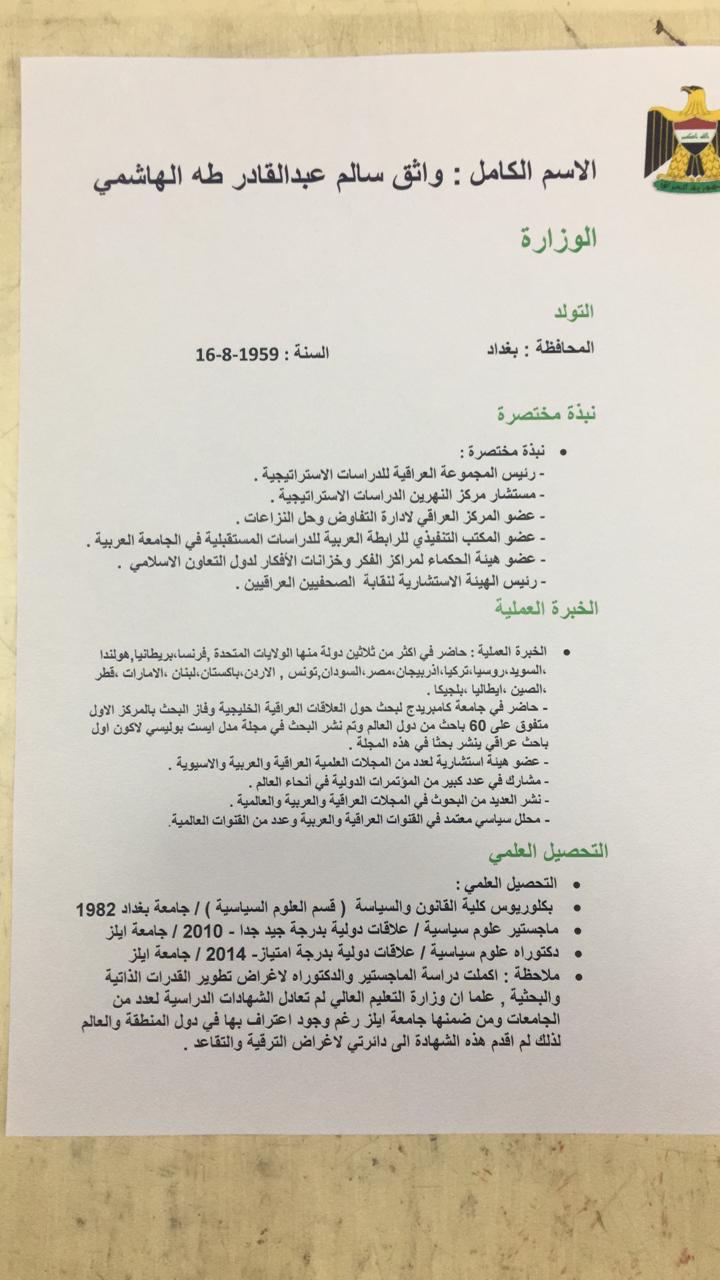 الاسم الكامل : واثق سالم عبدالقادر طه الهاشمي
الوزارة
التولد
المحافظة : بغداد السنة : 1959-8-16
نبذة مختصرة
• نبذة مختصرة :
- رئيس المجموعة العراقية للدراسات الاستراتيجية .
- مستشار مركز النهرين الدراسات الاستراتيجية .
- عضو المركز العراقي لادارة التفاوض وحل النزاعات .
- عضو المكتب التنفيذي للرابطة العربية للدراسات المستقبلية في الجامعة العربية .
- عضو هيئة الحكماء لمراكز الفكر وخزانات الأفكار لدول التعاون الاسلامي .
- رئيس الهيئة الاستشارية لنقابة الصحفيين العراقيين .
الخبرة العملية
• الخبرة العملية : حاضر في اكثر من ثلاثين دولة منها الولايات المتحدة ,فرنسا،بريطانيا,هولندا
،السويد،روسيا،تركيا،اذربيجان،مصر،السودان,تونس , الاردن،باكستان،لبنان ،الامارات ،قطر
،الصين ،ايطاليا ،بلجيكا .
- حاضر في جامعة كامبريدج لبحث حول العلاقات العراقية الخليجية وفاز البحث بالمركز الاول
متفوق على 60 باحث من دول العالم وتم نشر البحث في مجلة مدل ايست بوليسي لاكون اول
باحث عراقي ينشر بحثا في هذه المجلة .
- عضو هيئة استشارية لعدد من المجلات العلمية العراقية والعربية والاسيوية .
- مشارك في عدد كبير من المؤتمرات الدولية في أنحاء العالم .
- نشر العديد من البحوث في المجلات العراقية والعربية والعالمية .
- محلل سياسي معتمد في القنوات العراقية والعربية وعدد من القنوات العالمية.
التحصيل العلمي
• التحصيل العلمي :
• بكلوريوس كلية القانون والسياسة ( قسم العلوم السياسية ) / جامعة بغداد 1982
• ماجستير علوم سياسية / علاقات دولية بدرجة جيد جدا - 2010 / جامعة ايلز
• دكتوراه علوم سياسية / علاقات دولية بدرجة امتياز- 2014 / جامعة ايلز
• ملاحظة : اكملت دراسة الماجستير والدكتوراه لاغراض تطوير القدرات الذاتية
والبحثية , علما ان وزارة التعليم العالي لم تعادل الشهادات الدراسية لعدد من
الجامعات ومن ضمنها جامعة ايلز رغم وجود اعتراف بها في دول المنطقة والعالم
لذلك لم اقدم هذه الشهادة الى دائرتي لاغراض الترقية والتقاعد .